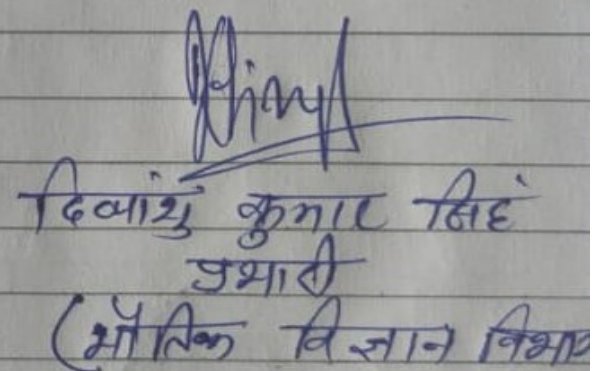 दिव्यांशु कुमार सिंह
प्रभारी
(भौतिक विज्ञान विभाग